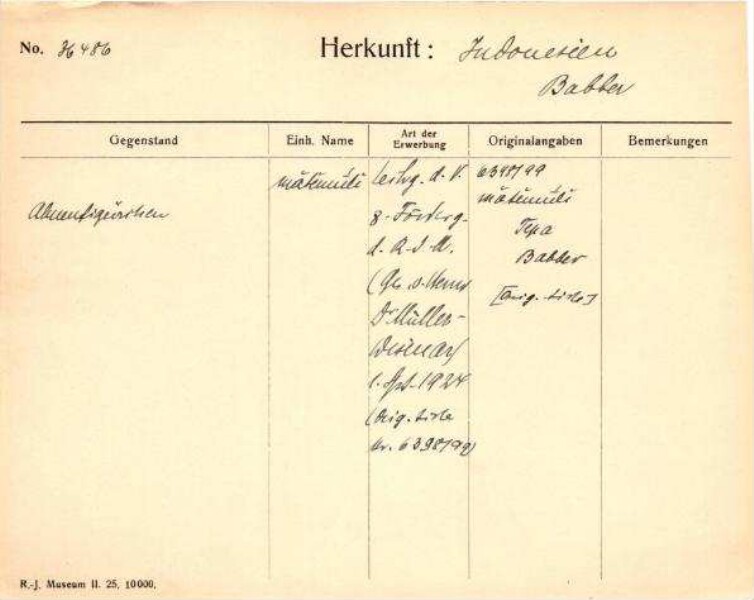 No. 36486
Herkunft: Indonesien
Babber
Gegenstand
Einh. Name
Art der
Erwerbung
Originalangaben
Bemerkungen
Ahnenfigürchen
mätemüli
d. V.
z. Förderg.
d. R-J-M.
Dr Müller-
Wismar)
1. Apr. 1924
(Orig. Liste
Nr. 6398/99)
6398/99
mätemüli
Tepa
Babber
[Orig. Liste]
R.-J. Museum II. 25. 10000.